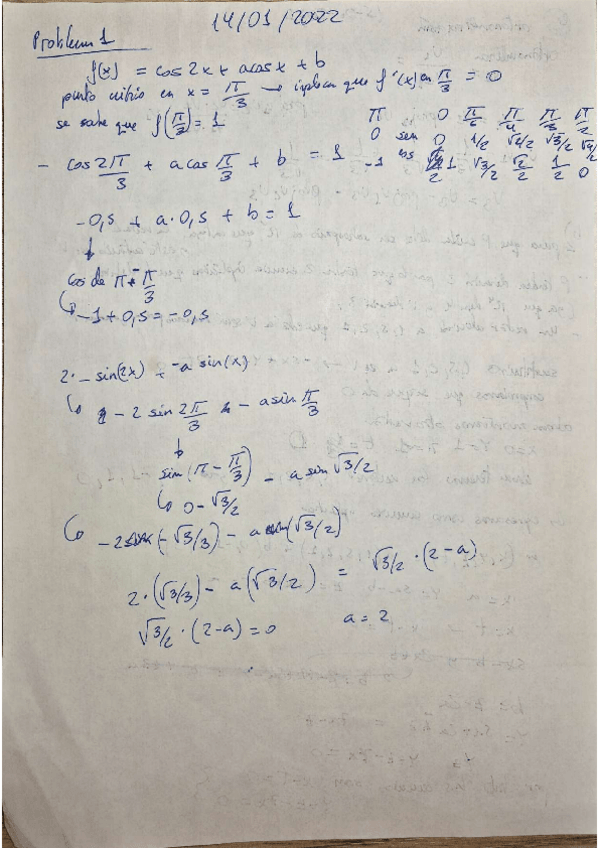 14/01/2022
Problem 1
f(x) = cos 2x + a cos x + b
punto critico en x = π/3 → implican que f'(x) en π/3 = 0
se sabe que f(π/3) = 1
π 0 π/6 π/4 π/3 π/2
0 sen 0 1/2 √2/2 √3/2
-1 cos 1 √3/2 √2/2 1/2 0
- cos 2π/3 + a cos π/3 + b = 1
-0,5 + a·0,5 + b = 1
↓
cos de π - π/3
↳ -1 + 0,5 = -0,5
2· -sin(2x) + -a sin(x)
↳ -2 sin 2π/3 - a sin π/3
↓
sin(π - π/3) - a sin √3/2
↳ 0 - √3/2
↳ -2 (-√3/3) - a (√3/2)
2·(√3/3) - a(√3/2) = √3/2 · (2-a)
√3/2 · (2-a) = 0 a = 2